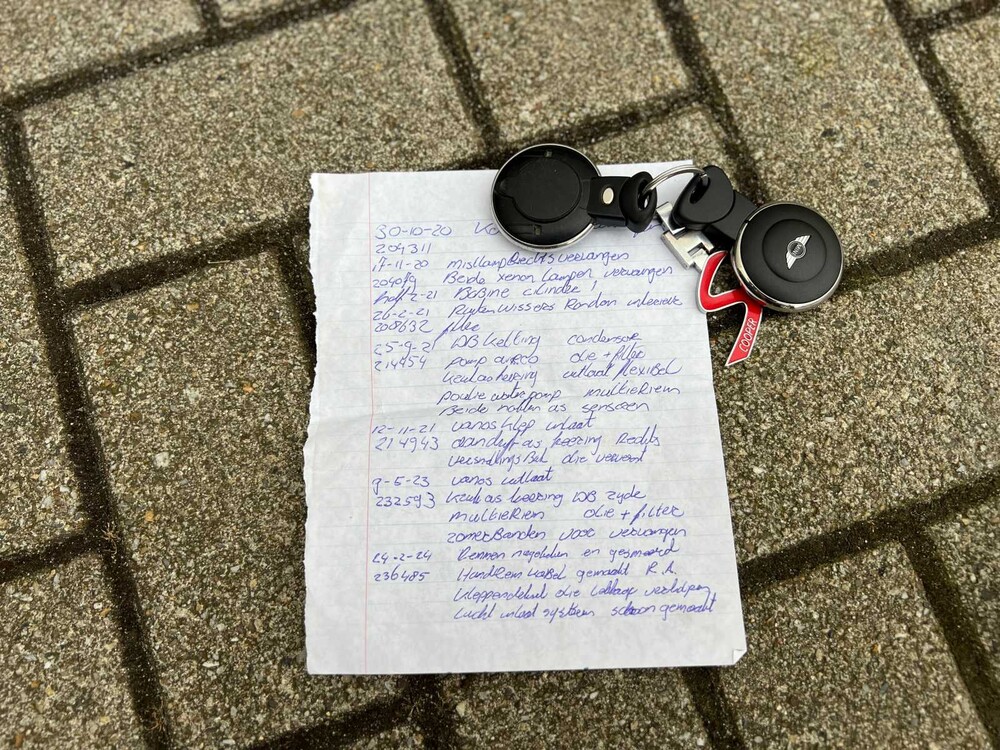 30-10-20 Ko
204311
17-11-20 mistlamp Rechts vervangen
Beide xenon lampen vervangen
2-21 BoBine cilinder 1
26-2-21 Ruitenwissers Rondom interieur
208632 filter
25-9-21 DB ketting condensor
214454 pomp airco olie + filter
keerring uitlaat flexibel
poulie waterpomp multieRiem
Beide nokken as sensoren
12-11-21 vanos klep inlaat
214943 aandrijf as keerring Rechts
versnellingsBak olie ververst
9-5-23 vanos uitlaat
232593 Krukas keerring DB zyde
multieRiem olie + filter
zomerBanden voor vervangen
24-2-24 Remmen nagekeken en gesmeerd
236485 HandRem kabel gemaakt R.A.
Kleppendeksel olie lekkage verholpen
Lucht inlaat systeem schoon gemaakt
COOPER